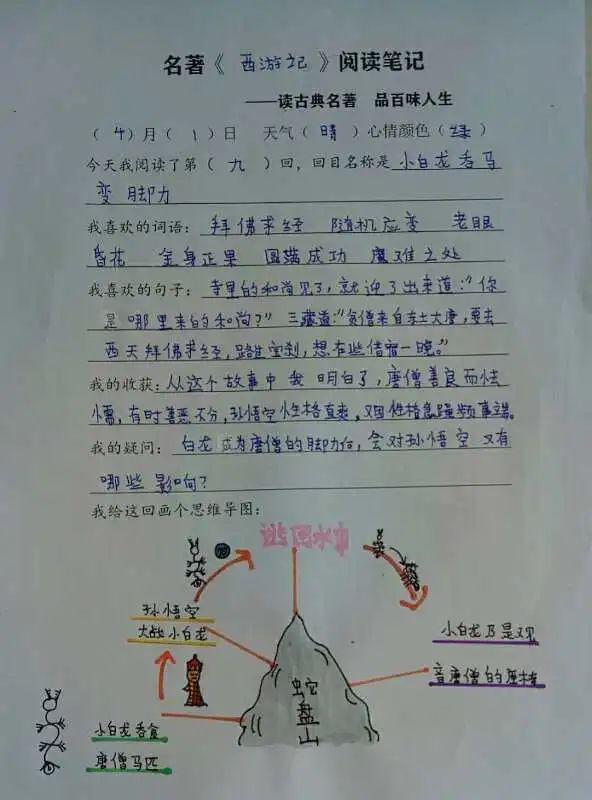 名著《西游记》阅读笔记
——读古典名著 品百味人生
（4）月（1）日 天气（晴）心情颜色（绿）
今天我阅读了第（九）回，回目名称是 小白龙吞马
变脚力
我喜欢的词语：拜佛求经 随机应变 老眼
昏花 金身正果 圆满成功 魔难之处
我喜欢的句子：寺里的和尚见了，就迎了出来道："你
是哪里来的和尚？"三藏道："贫僧来自东土大唐，要去
西天拜佛求经，路过宝刹，想在些借宿一晚。"
我的收获：从这个故事中我明白了，唐僧善良而怯
懦，有时善恶不分，孙悟空性格直爽，又因性格急躁频事端。
我的疑问：白龙成为唐僧的脚力后，会对孙悟空又有
哪些影响？
我给这回画个思维导图：
逃回水中
孙悟空
大战小白龙
小白龙乃是观
音唐僧的座椅
蛇盘山
小白龙吞食
唐僧马匹